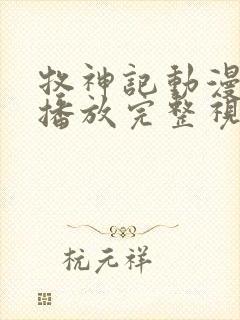 牧神記動漫
播放完整視
杭元祥